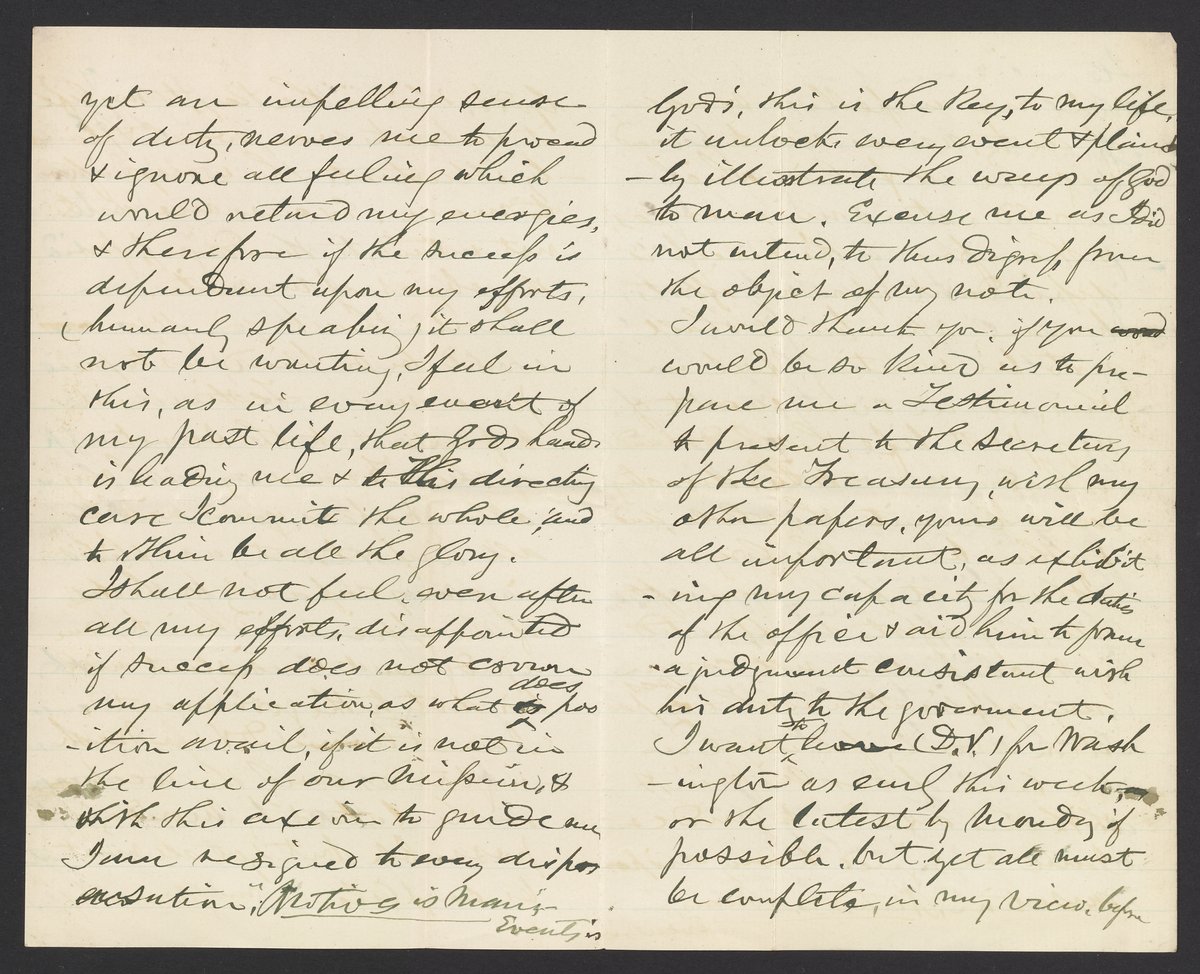 yet an impelling sense
of duty, nerves me to procead
& ignore all feeling which
would retard my energies,
& therefore if the success is
dependant upon my efforts,
(humanly speaking) it shall
not be wanting, I feel in
this, as in evry event of
my past life, that Gods hand
is leading me & to His directing
care I commit the whole, and
to Him be all the glory.
I shall not feel, even after
all my efforts, disappointed
if success does not crown
does
my application, as what is pos
-ition avail, if it is not in
the line of our Mission, &
with this axiom to guide me
I am resigned to every dispos
ensation, "Motives is Man's
Events is
God's, this is the Key, to my life,
it unlocks every event & plain
-ly illustrate the ways of God
to man. Excuse me as I did
not intend, to thus digress from
the object of my note.
I would thank you, if you
would be so kind as to pre-
pare me a Testimonial
to present to the Secretary
of the Treasury, with my
other papers, yours will be
all important, as exhibit
-ing my capacity for the duties
of the office & aid him to form
a judgment consistent with
his duty to the goverment.
to
I want leave (D.V.) for Wash
-ington as early this week,
or the latest by Monday if
possible. but yet all must
be complete, in my view, before